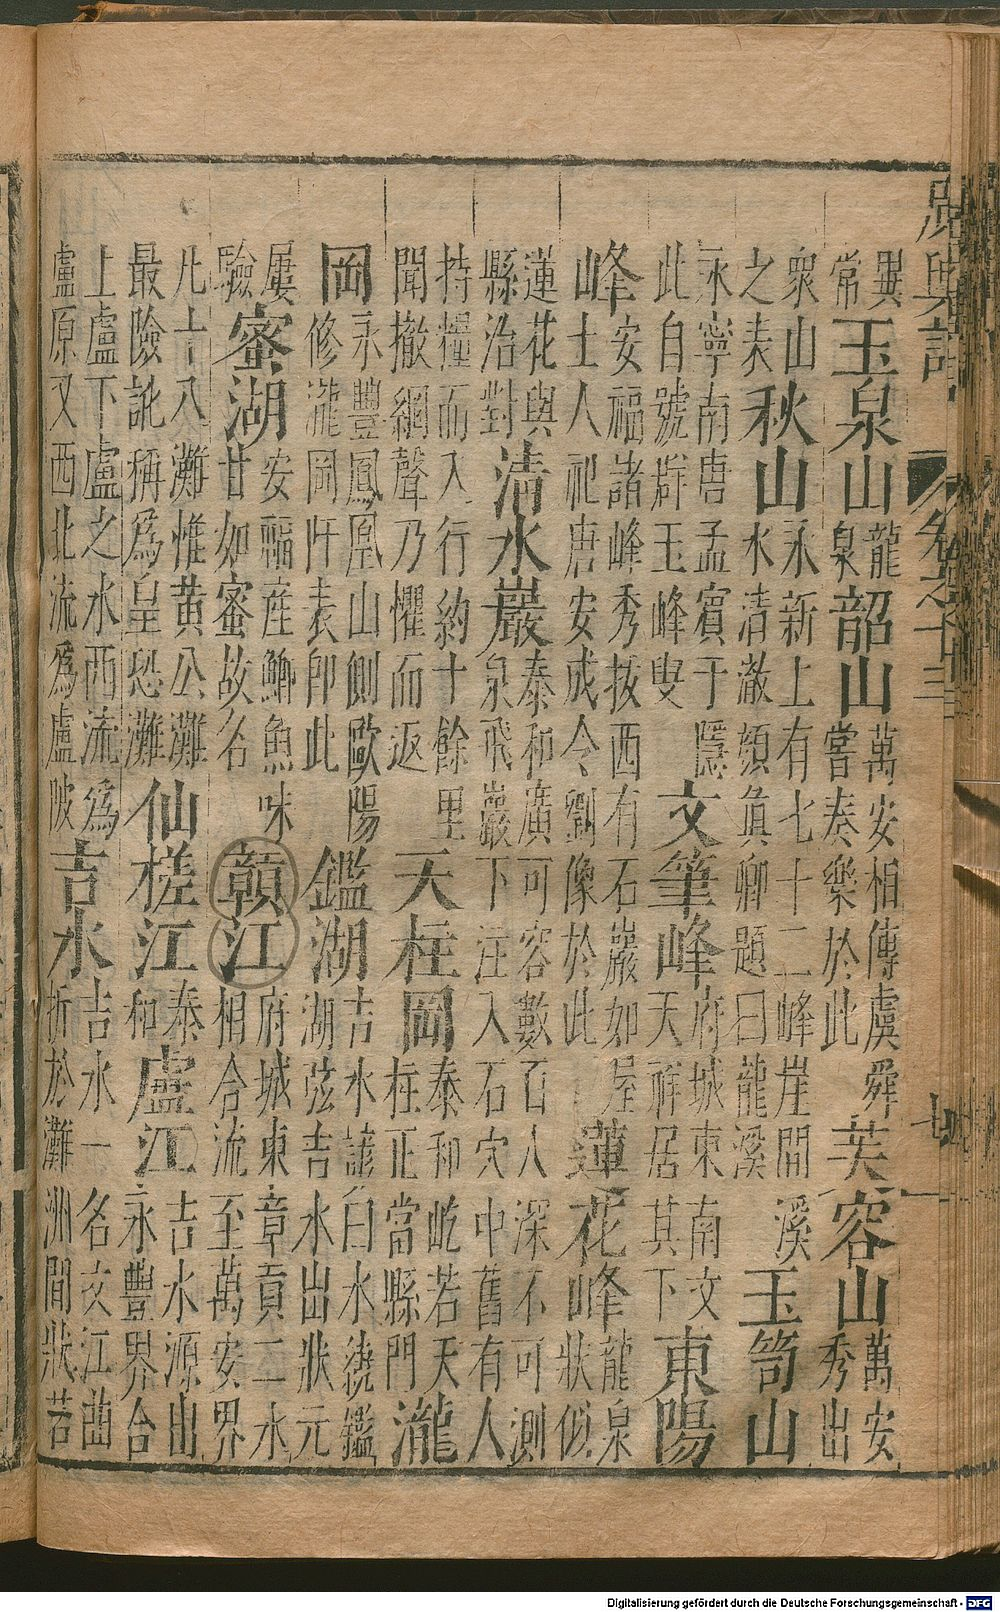 廣輿記 卷之十三 七
異常玉泉山龍泉韶山萬安相傳虞舜嘗奏樂於此芙容山萬安秀出
衆山之表秋山永新上有七十二峰崖間溪水清澈顔眞卿題曰龍溪玉笥山
永寧南唐孟賓于隱此自號群玉峰叟文筆峰府城東南文天祥居其下東陽
峰安福諸峰秀拔西有石巖如屋土人祀唐安成令劉像於此蓮花峰龍泉狀似
蓮花與縣治對清水巖泰和廣可容數百人深不可測泉飛巖下注入石穴中舊有人
持糧而入行約十餘里聞撤網聲乃懼而返天柱岡泰和屹若天柱正當縣門瀧
岡永豐鳳凰山側歐陽修瀧岡阡表卽此鑑湖吉水諺曰水繞鑑湖弦吉水出狀元
屢驗蜜湖安福産鯽魚味甘如蜜故名贑江府城東章貢二水相合流至萬安界
凡十八灘惟黄公灘最險訛稱爲皇恐灘仙槎江泰和盧江吉水源出永豐界合
上盧下盧之水西流爲盧原又西北流爲盧陂吉水吉水一名文江曲折於灘洲間狀若
Digitalisierung gefördert durch die Deutsche Forschungsgemeinschaft - DFG